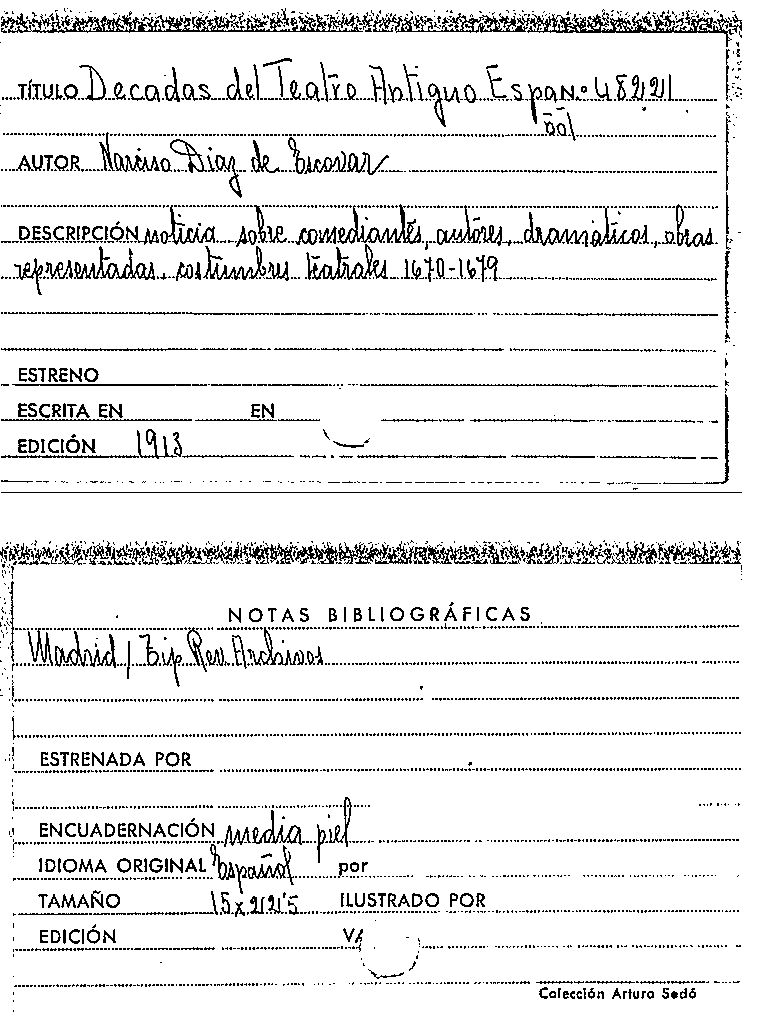 TÍTULO Decadas del Teatro Antiguo Espa N.º 48221
ñol
AUTOR Narciso Diaz de Escovar
DESCRIPCIÓN noticia sobre comediantes, autores, dramáticos, obras
representadas, costumbres teatrales 1670-1679
ESTRENO
ESCRITA EN EN
EDICIÓN 1913
NOTAS BIBLIOGRÁFICAS
Madrid / Tip Rev Archivos
ESTRENADA POR
ENCUADERNACIÓN media piel
IDIOMA ORIGINAL Español por
TAMAÑO 15x22'5 ILUSTRADO POR
EDICIÓN
Colección Arturo Sedó